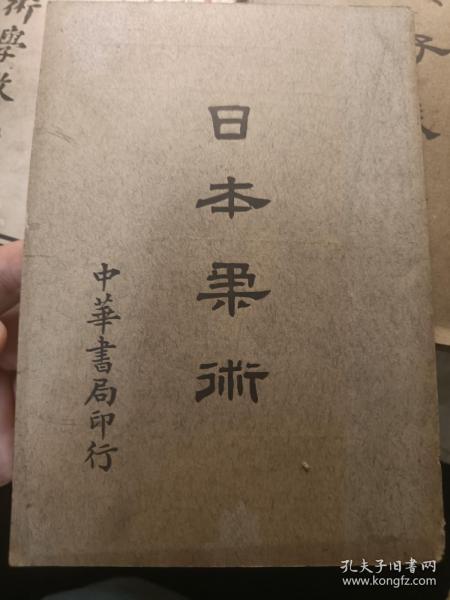 日本柔術
中華書局印行
術學教
孔夫子旧书网
www.kongfz.com